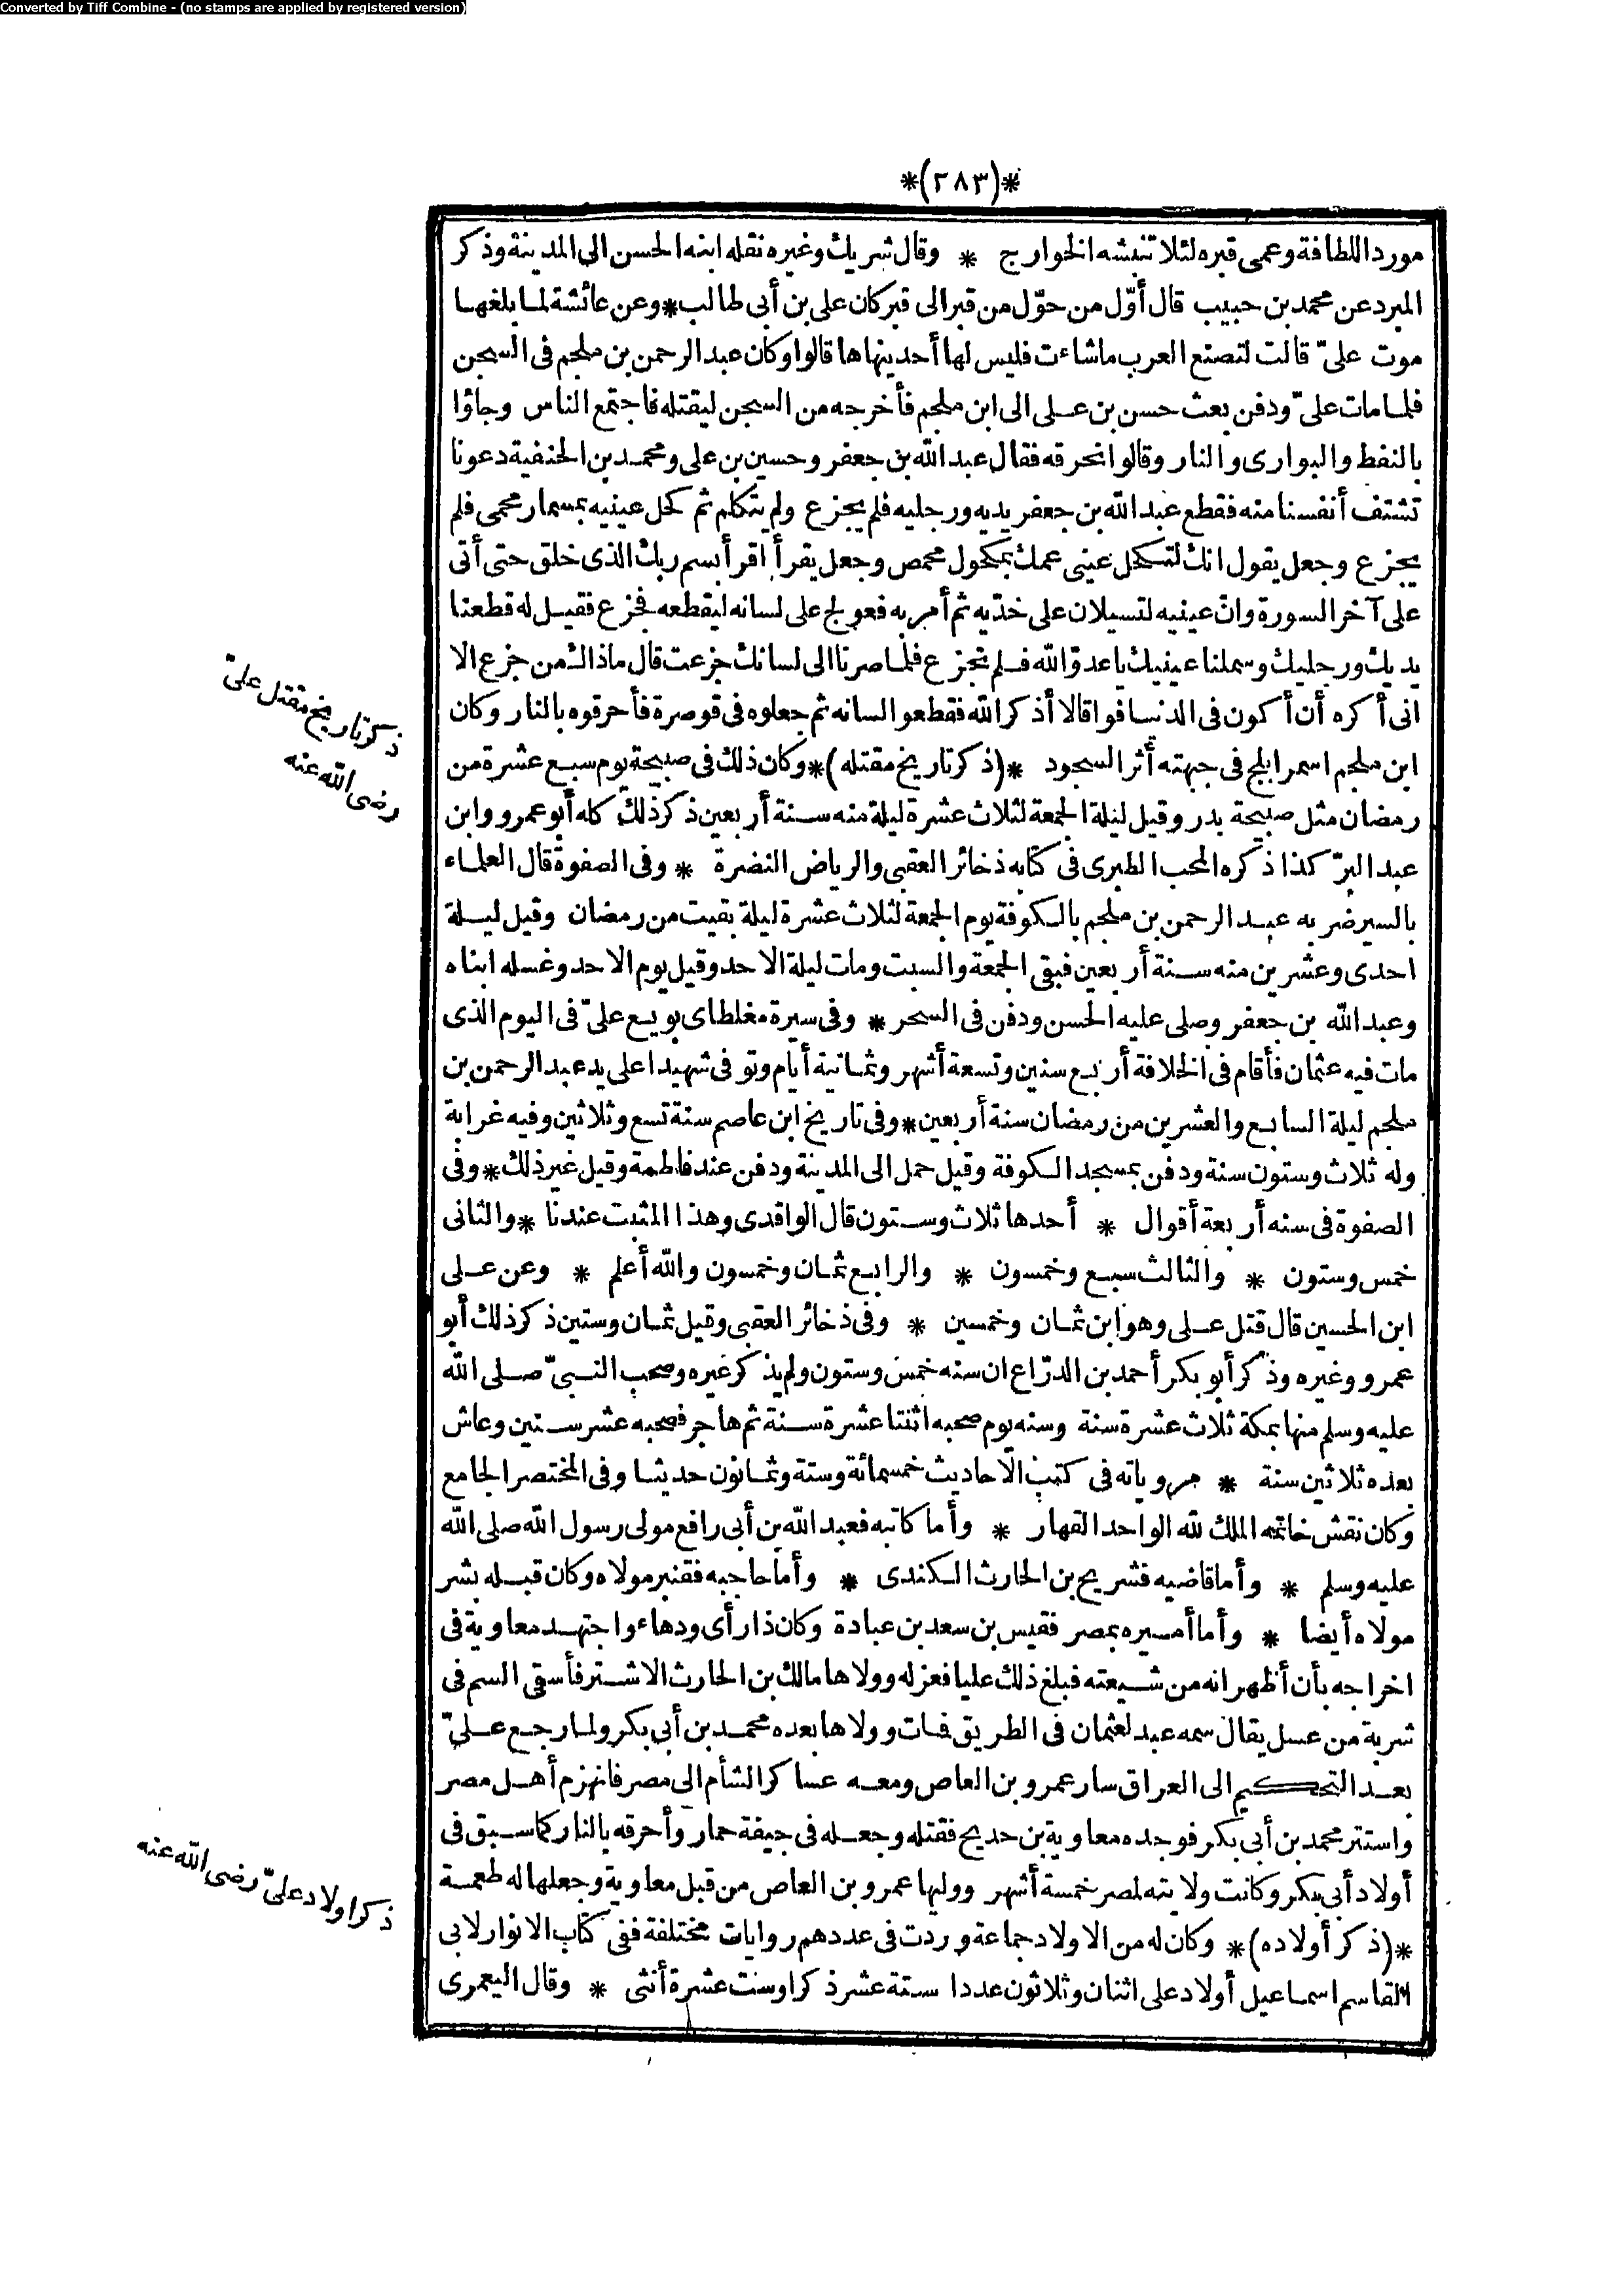 Converted by Tiff Combine - (no stamps are applied by registered version)
*(٢٨٣)*
مورد اللطافة وعمى قبره لئلا تنبشه الخوارج * وقال شريك وغيره نقله ابنه الحسن الى المدينة وذكر
المبرد عن محمد بن حبيب قال أوّل من حوّل من قبر الى قبر كان على بن أبى طالب * وعن عائشة لما بلغها
موت علىّ قالت لتصنع العرب ما شاءت فليس لها أحد ينهاها قالوا وكان عبد الرحمن بن ملجم فى السجن
فلما مات علىّ ودفن بعث حسن بن على الى ابن ملجم فأخرجه من السجن ليقتله فاجتمع الناس وجاؤا
بالنفط والبوارى والنار وقالوا نحرقه فقال عبد الله بن جعفر وحسين بن على ومحمد بن الحنفية دعونا
نشتف أنفسنا منه فقطع عبد الله بن جعفر يديه ورجليه فلم يجزع ولم يتكلم ثم كحل عينيه بمسمار محمى فلم
يجزع وجعل يقول انك لتكحل عينى عمك بمكحول ممص وجعل يقرأ اقرأ باسم ربك الذى خلق حتى أتى
على آخر السورة وانّ عينيه لتسيلان على خدّيه ثم أمر به فعولج على لسانه ليقطعه فجزع فقيل له قطعنا
يديك ورجليك وسملنا عينيك يا عدوّ الله فلم تجزع فلما صرنا الى لسانك جزعت قال ما ذاك من جزع الا
انى أكره أن أكون فى الدنيا فواقا لا أذكر الله فقطعوا لسانه ثم جعلوه فى قوصرة فأحرقوه بالنار وكان
ابن ملجم اسمر ابلج فى جبهته أثر السجود *(ذكر تاريخ مقتله)* وكان ذلك فى صبيحة يوم سبع عشرة من
رمضان مثل صبيحة بدر وقيل ليلة الجمعة لثلاث عشرة ليلة منه سنة أربعين ذكر ذلك كله أبو عمرو وابن
عبد البرّ كذا ذكره المحب الطبرى فى كتابه ذخائر العقبى والرياض النضرة * وفى الصفوة قال العلماء
بالسير ضربه عبد الرحمن بن ملجم بالكوفة يوم الجمعة لثلاث عشرة ليلة بقيت من رمضان وقيل ليلة
احدى وعشرين منه سنة أربعين فبقى الجمعة والسبت ومات ليلة الاحد وقيل يوم الاحد وغسله ابناه
وعبد الله بن جعفر وصلى عليه الحسن ودفن فى السحر * وفى سيرة مغلطاى بويع علىّ فى اليوم الذى
مات فيه عثمان فأقام فى الخلافة أربع سنين وتسعة أشهر وثمانية أيام وتوفى شهيدا على يد عبد الرحمن بن
ملجم ليلة السابع والعشرين من رمضان سنة أربعين * وفى تاريخ ابن عاصم سنة تسع وثلاثين وفيه غرابة
وله ثلاث وستون سنة ودفن بمسجد الكوفة وقيل حمل الى المدينة ودفن عند فاطمة وقيل غير ذلك * وفى
الصفوة فى سنه أربعة أقوال * أحدها ثلاث وستون قال الواقدى وهذا المثبت عندنا * والثانى
خمس وستون * والثالث سبع وخمسون * والرابع ثمان وخمسون والله أعلم * وعن على
ابن الحسين قال قتل على وهو ابن ثمان وخمسين * وفى ذخائر العقبى وقيل ثمان وستين ذكر ذلك أبو
عمرو وغيره وذكر أبو بكر أحمد بن الدرّاع ان سنه خمس وستون ولم يذكر غيره وصحب النبىّ صلى الله
عليه وسلم منها بمكة ثلاث عشرة سنة وسنه يوم صحبه اثنتا عشرة سنة ثم هاجر فصحبه عشر سنين وعاش
بعده ثلاثين سنة * مروياته فى كتب الاحاديث خمسمائة وستة وثمانون حديثا وفى المختصر الجامع
وكان نقش خاتمه الملك لله الواحد القهار * وأما كاتبه فعبد الله بن أبى رافع مولى رسول الله صلى الله
عليه وسلم * وأما قاضيه فشريح بن الحارث الكندى * وأما حاجبه فقنبر مولاه وكان قبله بشر
مولاه أيضا * وأما أميره بمصر فقيس بن سعد بن عبادة وكان ذا رأى ودهاء واجتهد معاوية فى
اخراجه بأن أظهر انه من شيعته فبلغ ذلك عليا فعزله وولاها مالك بن الحارث الاشتر فأسقى السم فى
شربة من عسل يقال سمه عبد لعثمان فى الطريق فمات وولاها بعده محمد بن أبى بكر ولما رجع علىّ
بعد التحكيم الى العراق سار عمرو بن العاص ومعه عساكر الشأم الى مصر فانهزم أهل مصر
واستتر محمد بن أبى بكر فوجده معاوية بن حديج فقتله وجعله فى جيفة حمار وأحرقه بالنار كما سبق فى
أولاد أبى بكر وكانت ولايته لمصر خمسة أشهر ووليها عمرو بن العاص من قبل معاوية وجعلها له طعمة
*(ذكر أولاده)* وكان له من الاولاد جماعة وردت فى عددهم روايات مختلفة ففى كتاب الانوار لابى
القاسم اسماعيل أولاد على اثنان وثلاثون عددا ستة عشر ذكرا وست عشرة أنثى * وقال اليعمرى
ذكر تاريخ مقتل علىّ
رضى الله عنه
ذكر اولاد علىّ رضى الله عنه